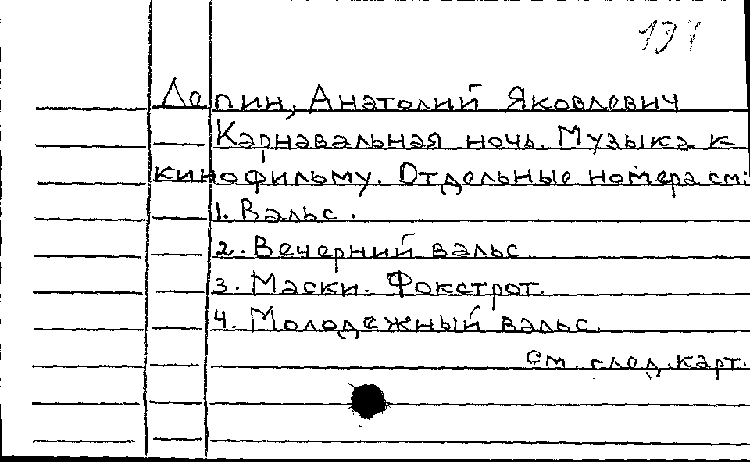 131
Лепин, Анатолий Яковлевич
Карнавальная ночь. Музыка к
кинофильму. Отдельные номера см:
1. Вальс.
2. Вечерний вальс
3. Маски. Фокстрот.
4. Молодежный вальс.
см. след. карт.